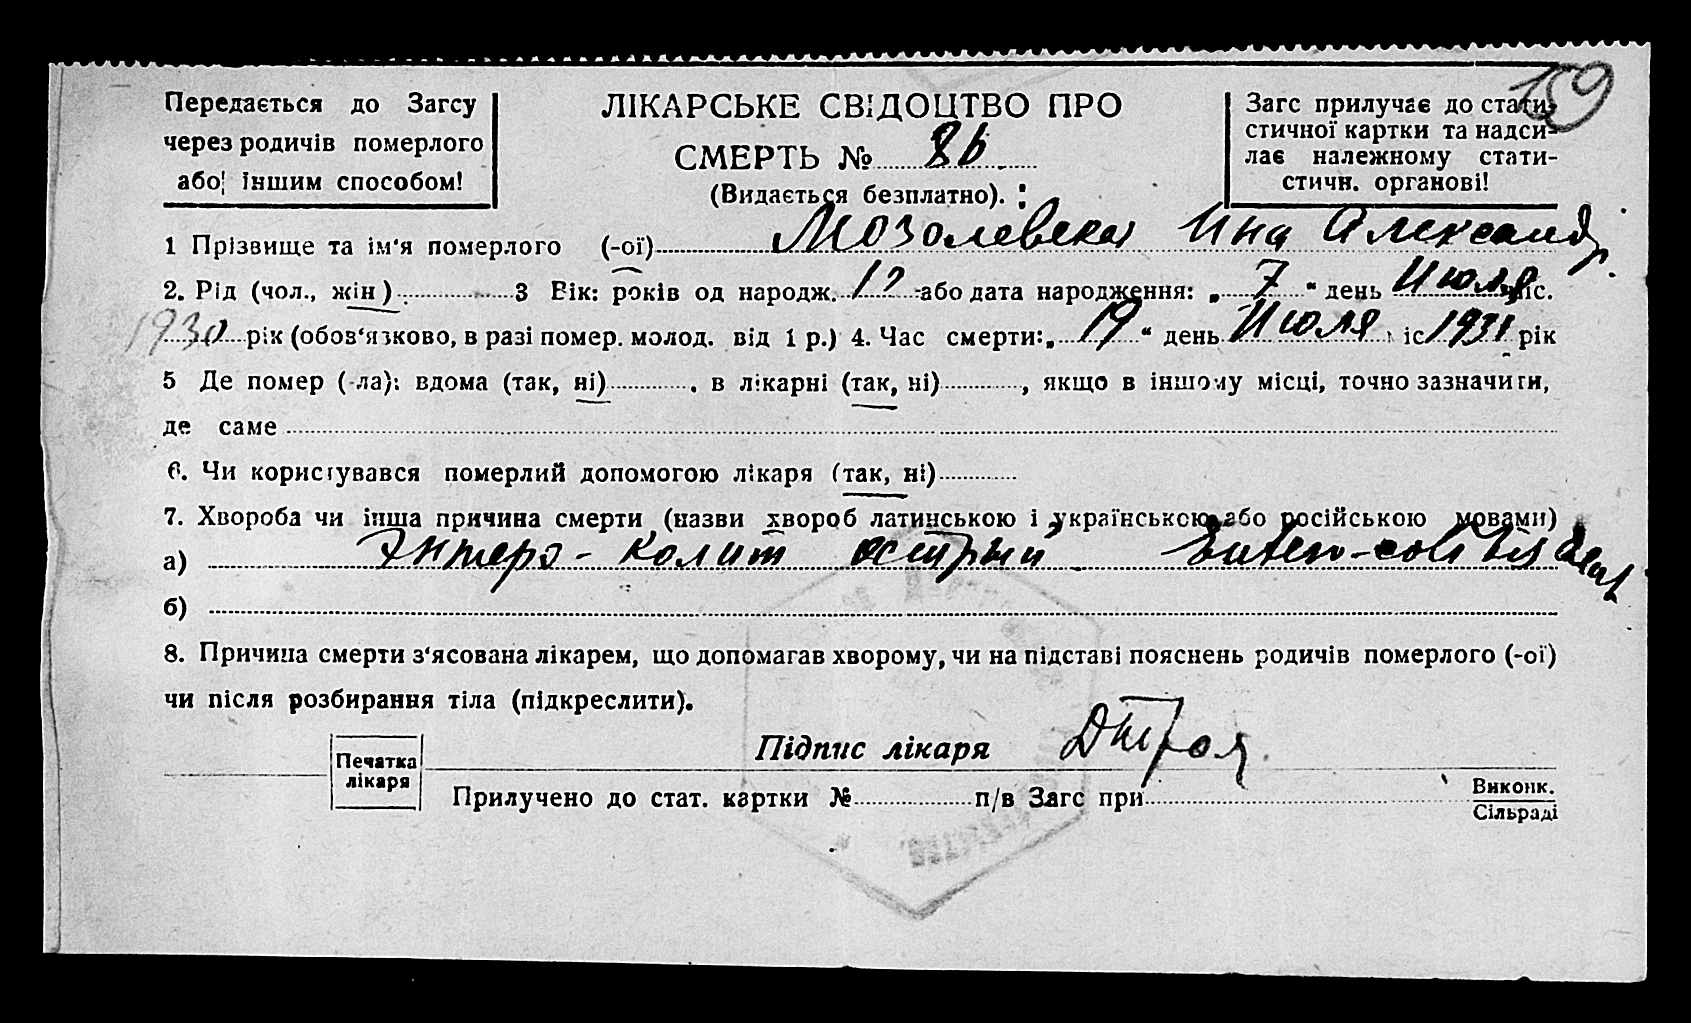 159
Передається до Загсу
через родичів померлого
або іншим способом!
ЛІКАРСЬКЕ СВІДОЦТВО ПРО
СМЕРТЬ № 86
(Видається безплатно).
Загс прилучає до стати-
стичної картки та надси-
лає належному стати-
стичн. органові!
1 Прізвище та ім'я померлого (-ої) Мозолевская Ина Александр.
2. Рід (чол., жін) 3 Вік: років од народж. або дата народження: „7“ день Июля міс.
1930 рік (обов'язково, в разі помер. молод. від 1 р.) 4. Час смерти: „19“ день Июля міс 1931 рік
5 Де помер (-ла): вдома (так, ні) , в лікарні (так, ні) , якщо в іншому місці, точно зазначити,
де саме
6. Чи користувався померлий допомогою лікаря (так, ні)
7. Хвороба чи інша причина смерти (назви хвороб латинською і українською або російською мовами)
а) Энтеро-колит острый Entero-colitis acut
б)
8. Причина смерти з'ясована лікарем, що допомагав хворому, чи на підставі пояснень родичів померлого (-ої)
чи після розбирання тіла (підкреслити).
Печатка
лікаря
Підпис лікаря
Прилучено до стат. картки № п/в Загс при
Виконк.
Сільраді